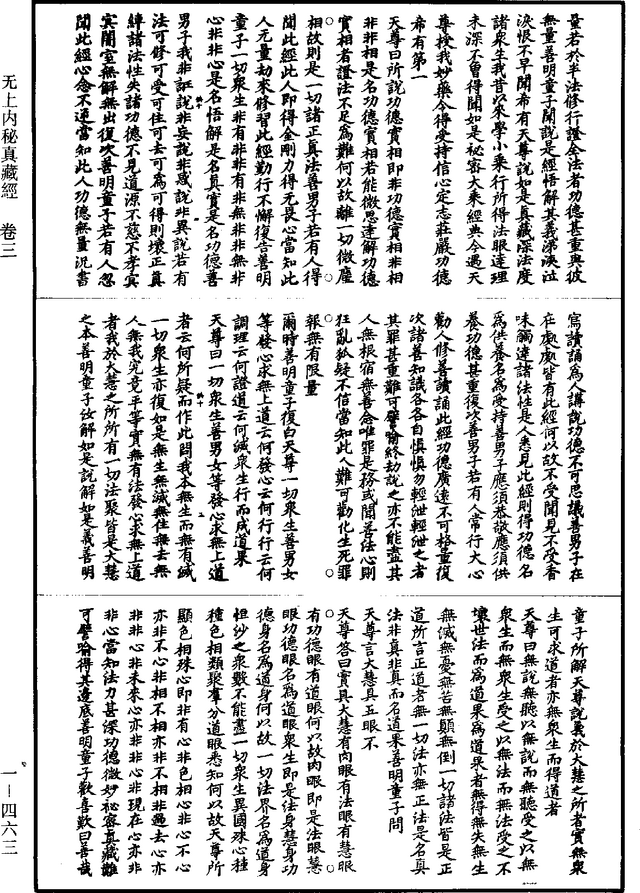 无上内秘真藏經 卷三
一－四六三
量若於半法修行證全法者功德甚重與彼
無量善明童子聞說是經悟解其義涕淚泣
淚恨不早聞希有天尊說如是真藏深法度
諸衆生我昔以來學小乘行所得法眼達理
未深不曾得聞如是祕密大乘經典今遇天
尊授我妙藥令得受持信心定志莊嚴功德
希有第一
天尊曰所說功德實相即非功德實相非相
非非相是名功德實相若能微思達解功德
實相者證法不足爲難何以故離一切微塵
相故則是一切諸正真法善男子若有人得
聞此經此人即得金剛力得无畏心當知此
人元量劫來修習此經勤行不懈復告善明
童子一切衆生非有非非有非無非非無非
心非非心是名悟解是名真實是名功德善
男子我非誑說非妄說非惑說非異說若有
法可修可受可住可去可爲可得則壞正真
諸法性失諸功德不見道源不慈不孝實
闇室無解無出復次善明童子若有人忽
聞此經心念不逆當知此人功德無量況書
寫讀誦爲人講說功德不可思議善男子在
在處處皆有此經何以故不受聞見不受香
味觸達諸法性是人悉見此經則得功德名
爲供養名爲受持善男子應須恭敬應須供
養功德甚重復次善男子若有人常行大心
勸人修善讀誦此經功德廣遠不可格量復
次諸善知識各各自慎慎勿輕泄輕泄之者
其罪甚重難可譬喻終劫說之亦不能盡其
人無根宿無善念唯罪是務或聞善法心則
狂亂狐疑不信當知此人難可勸化生死罪
報無有限量
爾時善明童子復白天尊一切衆生善男女
等發心求無上道云何發心云何行行云何
調理云何證道云何滅衆生行而成道果
天尊曰一切衆生善男女等發心求無上道
者云何所疑而作此問我本無生而無有滅
一切衆生亦復如是無生無滅無住無去無
人無我究竟平等實無有法發心求無上道
者我於大慧之所所有一切法聚皆是大慧
之本善明童子汝解如是說解如是義善明
童子所解天尊說義於大慧之所者實無衆
生可求道者亦無衆生而得道者
天尊曰無說無聽以無說而無聽受之以無
衆生而無衆生受之以無法而無法受之不
壞世法而爲道果爲道果者無得無失無生
無滅無憂無苦無顛無倒一切諸法皆是正
道所言正道者無一切法亦無正法是名真
法非真非真而名道果善明童子問
天尊言大慧具五眼不
天尊答曰實具大慧有肉眼有法眼有慧眼
有功德眼有道眼何以故肉眼即是法眼慧
眼功德眼名爲道眼衆生即是法身慧身功
德身名爲道身何以故一切法界名爲道身
恒沙之衆數不能盡一切衆生異國殊心種
種色相類聚羣分道眼悉知何以故天尊所
顯色相殊心即非有心非色相心非心不心
亦非不心非相不相亦非不相非過去心亦
非非心非未來心亦非非心非現在心亦非
非心當知法力甚深功德微妙祕密真藏難
可譬喻得其邊底善明童子歡喜歎曰善哉